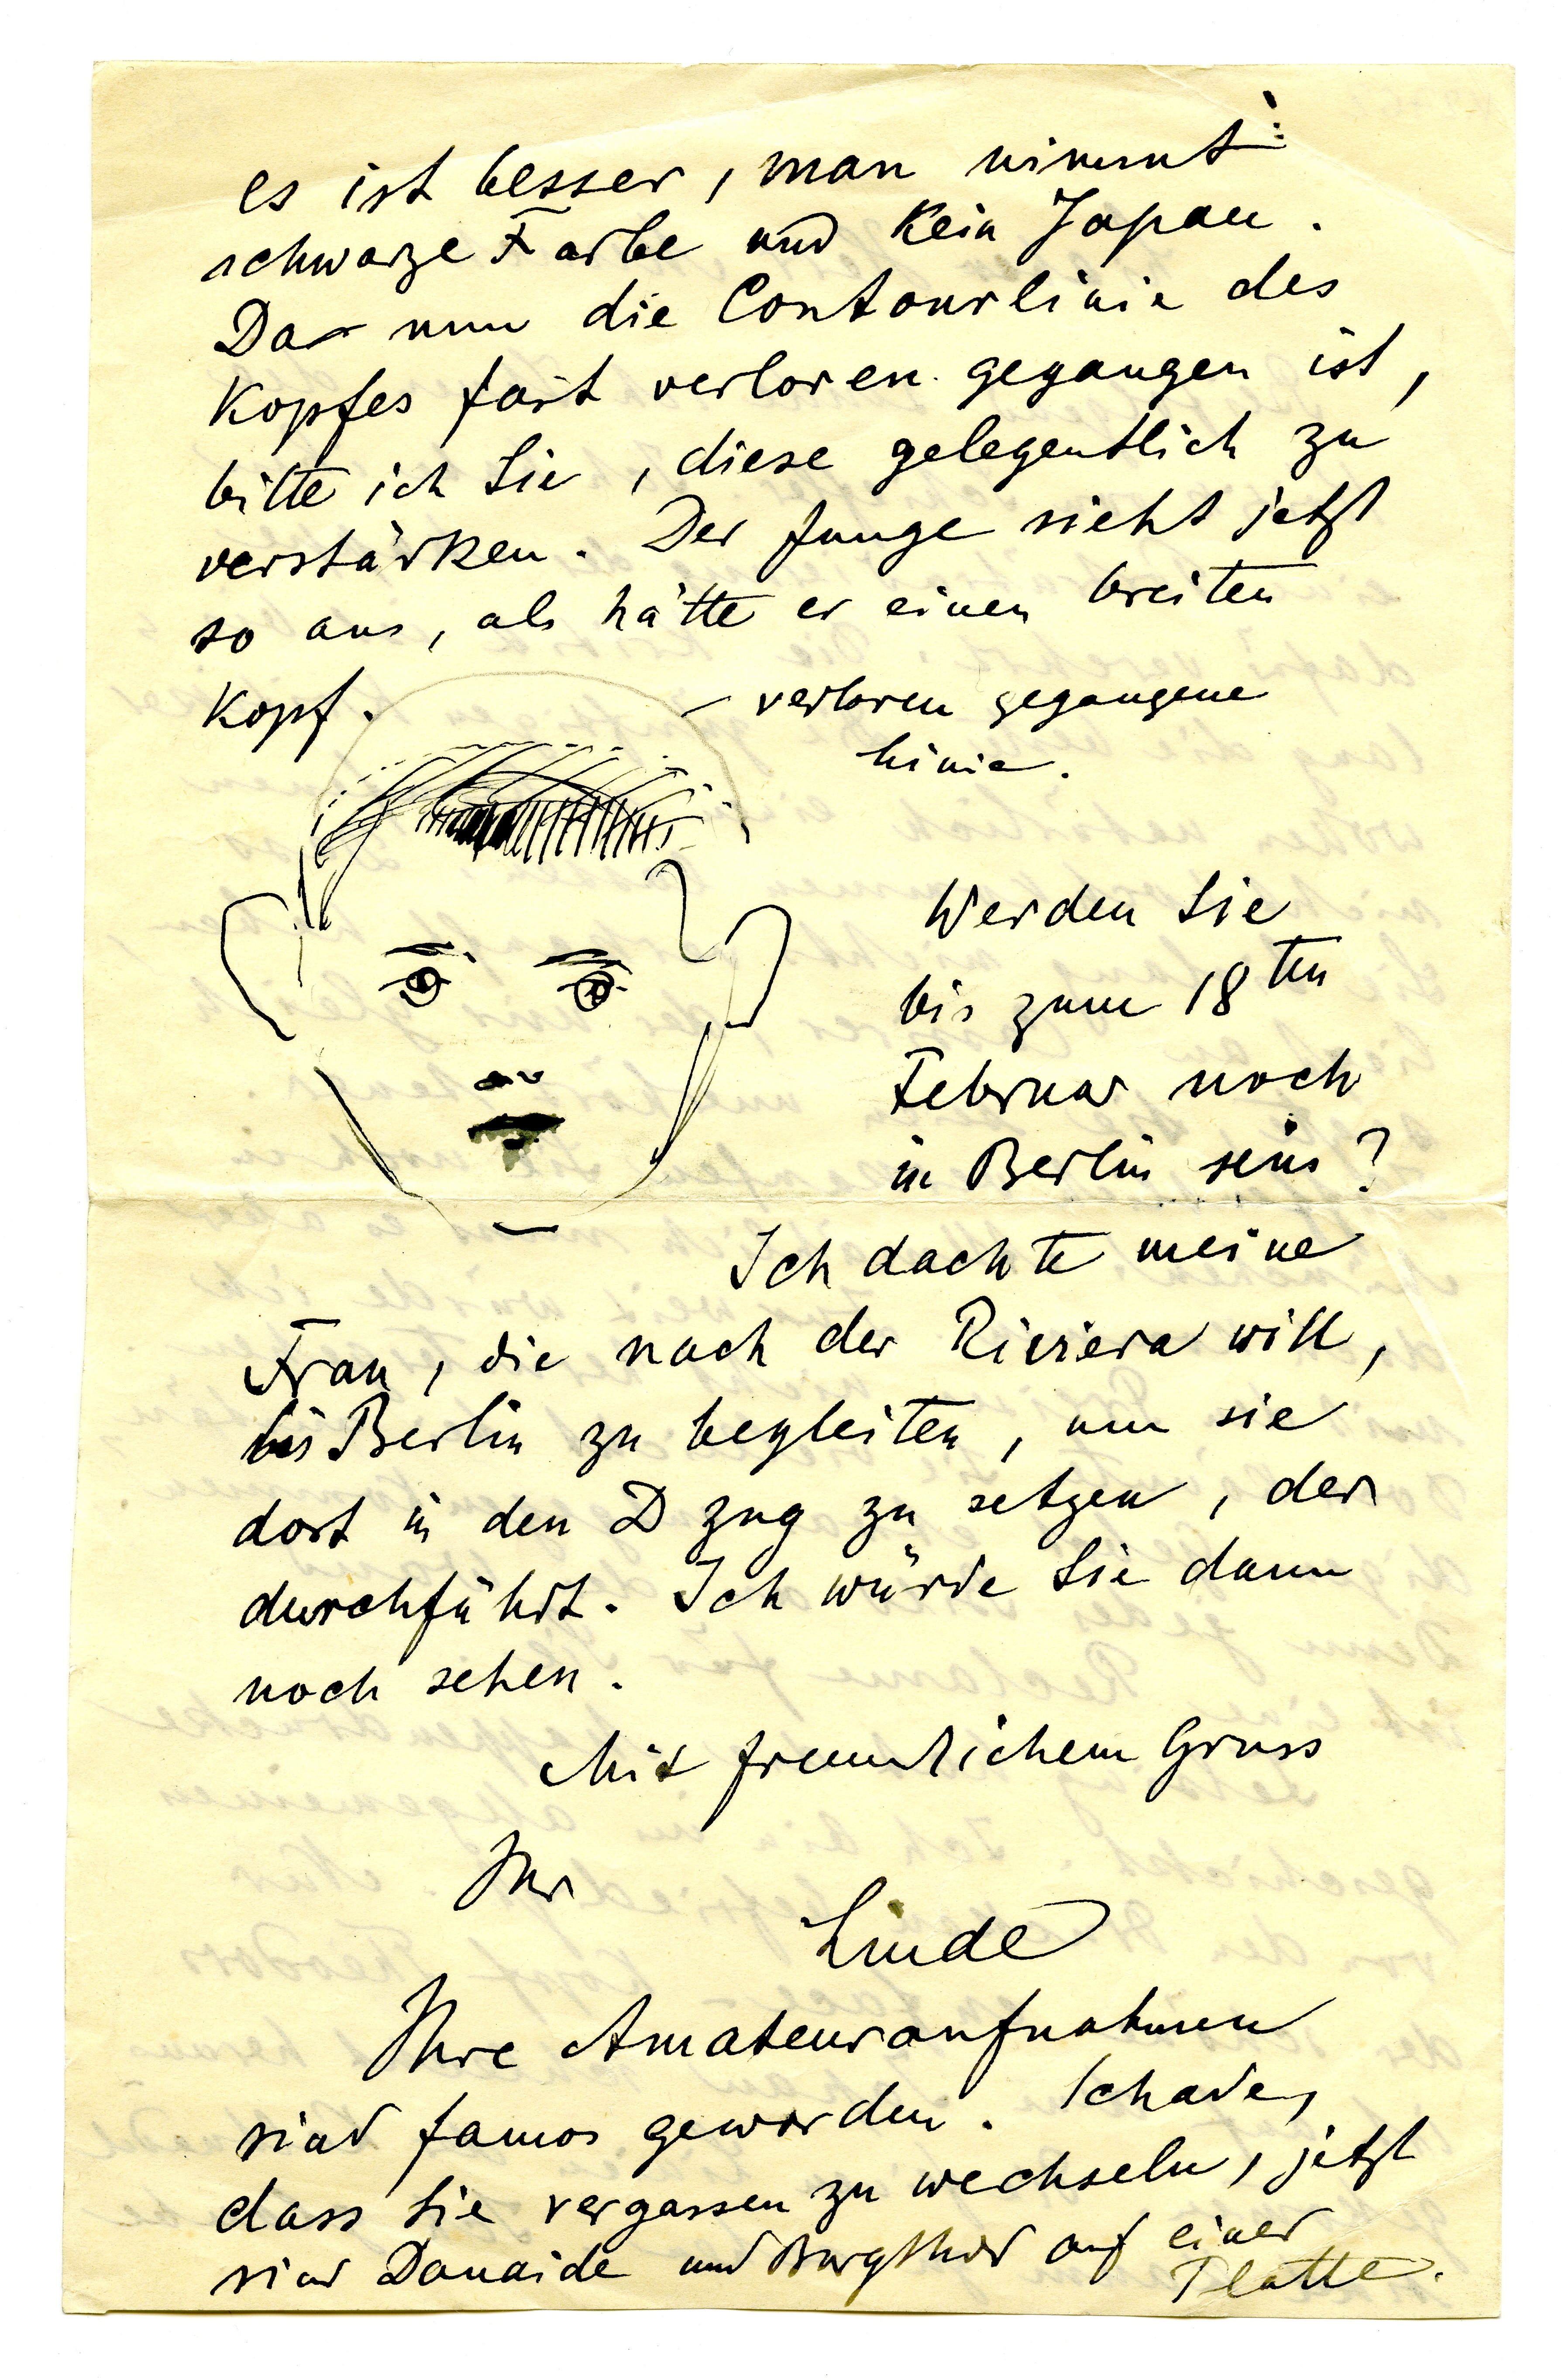 es ist besser, man nimmt:
schwarze Farbe und Kein Japan.
Da nun die Contourlinie des
Kopfes fast verloren gegangen ist,
bitte ich Sie, diese gelegentlich zu
verstärken. Der Junge sieht jetzt
so aus, als hätte er einen breiten
Kopf.
– verloren gegangene
Linie.
Werden Sie
bis zum 18ten
Februar noch
in Berlin sein?
Ich dachte meine
Frau, die nach der Riviera will,
bis Berlin zu begleiten, um sie
dort in den D Zug zu setzen, der
durchführt. Ich würde Sie dann
noch sehen.
Mit freundlichem Gruss
Ihr
Linde
Ihre Amateuraufnahmen
sind famos geworden. Schade,
dass Sie vergassen zu wechseln, jetzt
sind Danaide und Burgthor auf einer
Platte.